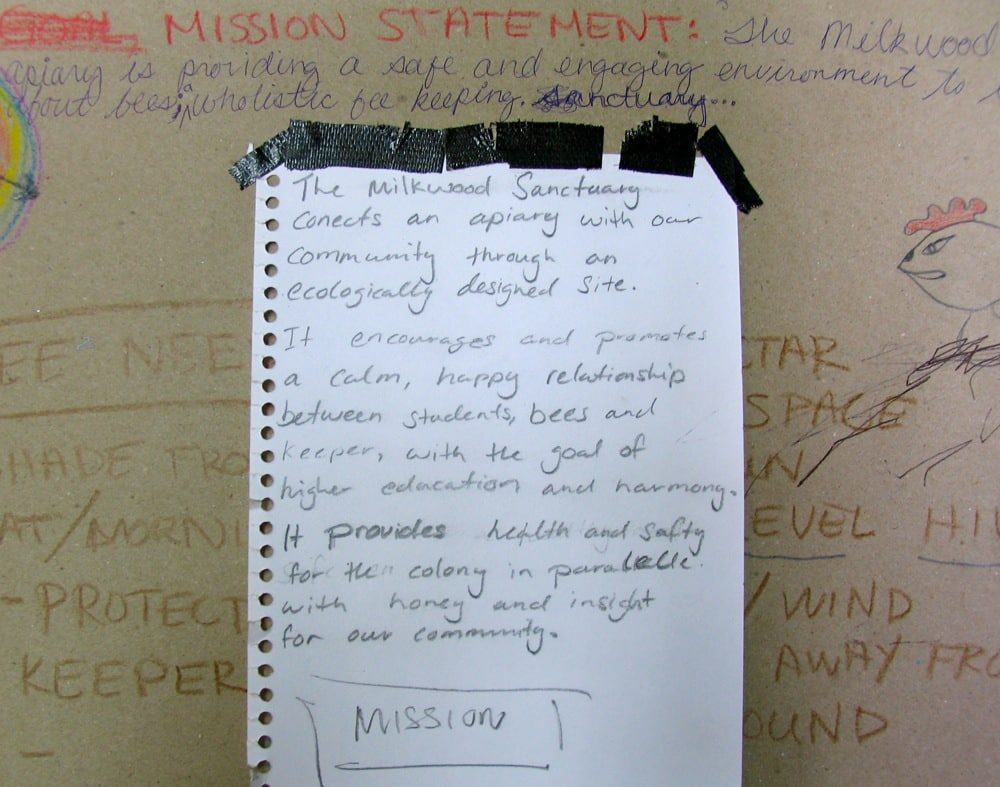 MISSION STATEMENT: The Milkwood
apiary is providing a safe and engaging environment to
about bees, & wholistic bee keeping. Sanctuary...
The Milkwood Sanctuary
conects an apiary with our
community through an
ecologically designed site.
It encourages and promotes
a calm, happy relationship
between students, bees and
keeper, with the goal of
higher education and harmony.
It provides health and safty
for the colony in paralelle.
with honey and insight
for our community.
MISSION
EE NEE
SHADE FRO
AT/MORNI
- PROTECT
KEEPER
-
CTAR
SPACE
UN
LEVEL HI
/WIND
AWAY FRO
OUND